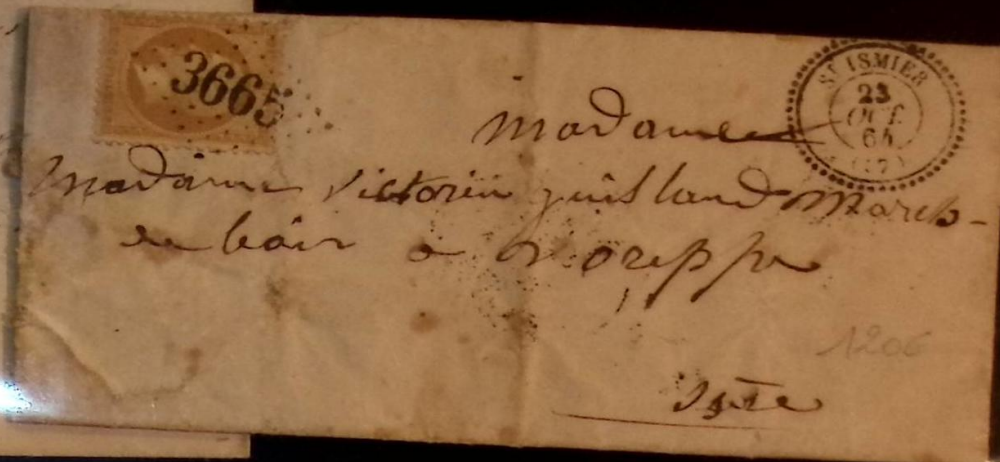 3665
ST ISMIER
23
OCT.
64
(37)
Madame
Madame Victorin guilland March-
de bois a Voreppe
Isère
1206